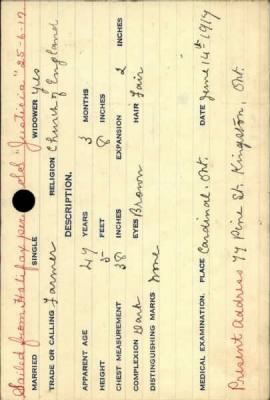 Sailed from Halifax per "Justicia" 25-6-17
MARRIED SINGLE WIDOWER Yes
TRADE OR CALLING Farmer RELIGION Church of England
DESCRIPTION.
APPARENT AGE 47 YEARS 3 MONTHS
HEIGHT 5 FEET 8 INCHES
CHEST MEASUREMENT 38 INCHES EXPANSION 2 INCHES
COMPLEXION Dark EYES Brown HAIR Fair
DISTINGUISHING MARKS None
MEDICAL EXAMINATION. PLACE Cardinal, Ont. DATE June 14th 1917
Present Address 79 Pine St. Kingston, Ont.